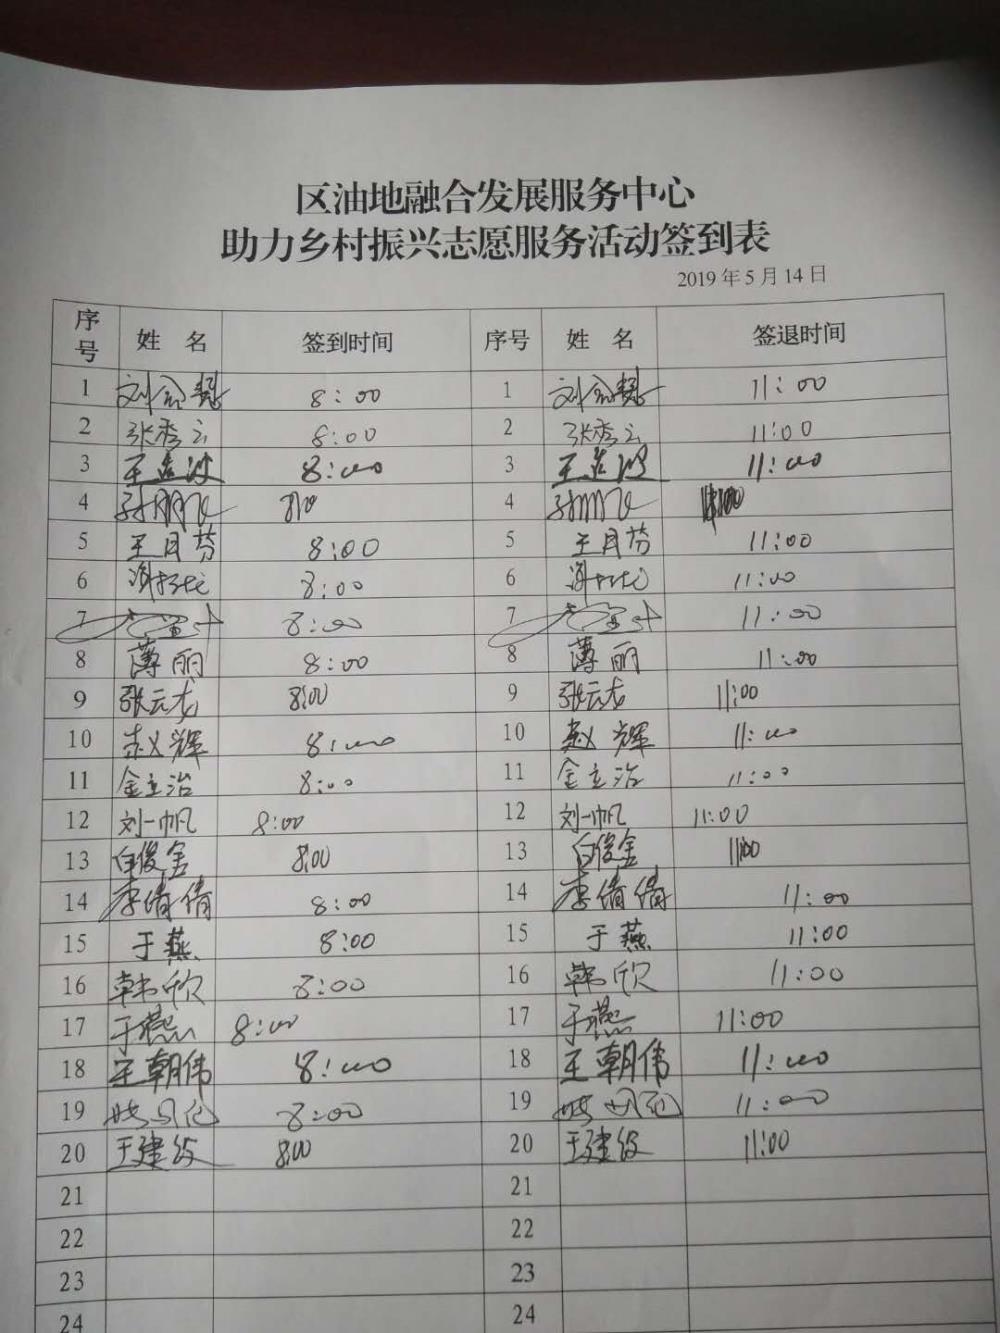 区油地融合发展服务中心
助力乡村振兴志愿服务活动签到表
2019年5月14日
序号 姓 名 签到时间 序号 姓 名 签退时间
1 8:00 1 11:00
2 张秀云 8:00 2 张秀云 11:00
3 8:00 3 11:00
4 孙朋飞 4 孙朋飞
5 王月芬 8:00 5 王月芬 11:00
6 8:00 6 11:00
7 8:00 7 11:00
8 薄丽 8:00 8 薄丽 11:00
9 张云龙 8:00 9 张云龙 11:00
10 赵辉 8:00 10 赵辉 11:00
11 金立治 8:00 11 金立治 11:00
12 刘一帆 8:00 12 刘一帆 11:00
13 白俊金 8:00 13 白俊金 11:00
14 李倩倩 8:00 14 李倩倩 11:00
15 于燕 8:00 15 于燕 11:00
16 韩欣 8:00 16 韩欣 11:00
17 8:00 17 11:00
18 王朝伟 8:00 18 王朝伟 11:00
19 8:00 19 11:00
20 8:00 20 11:00
21 21
22 22
23 23
24 24